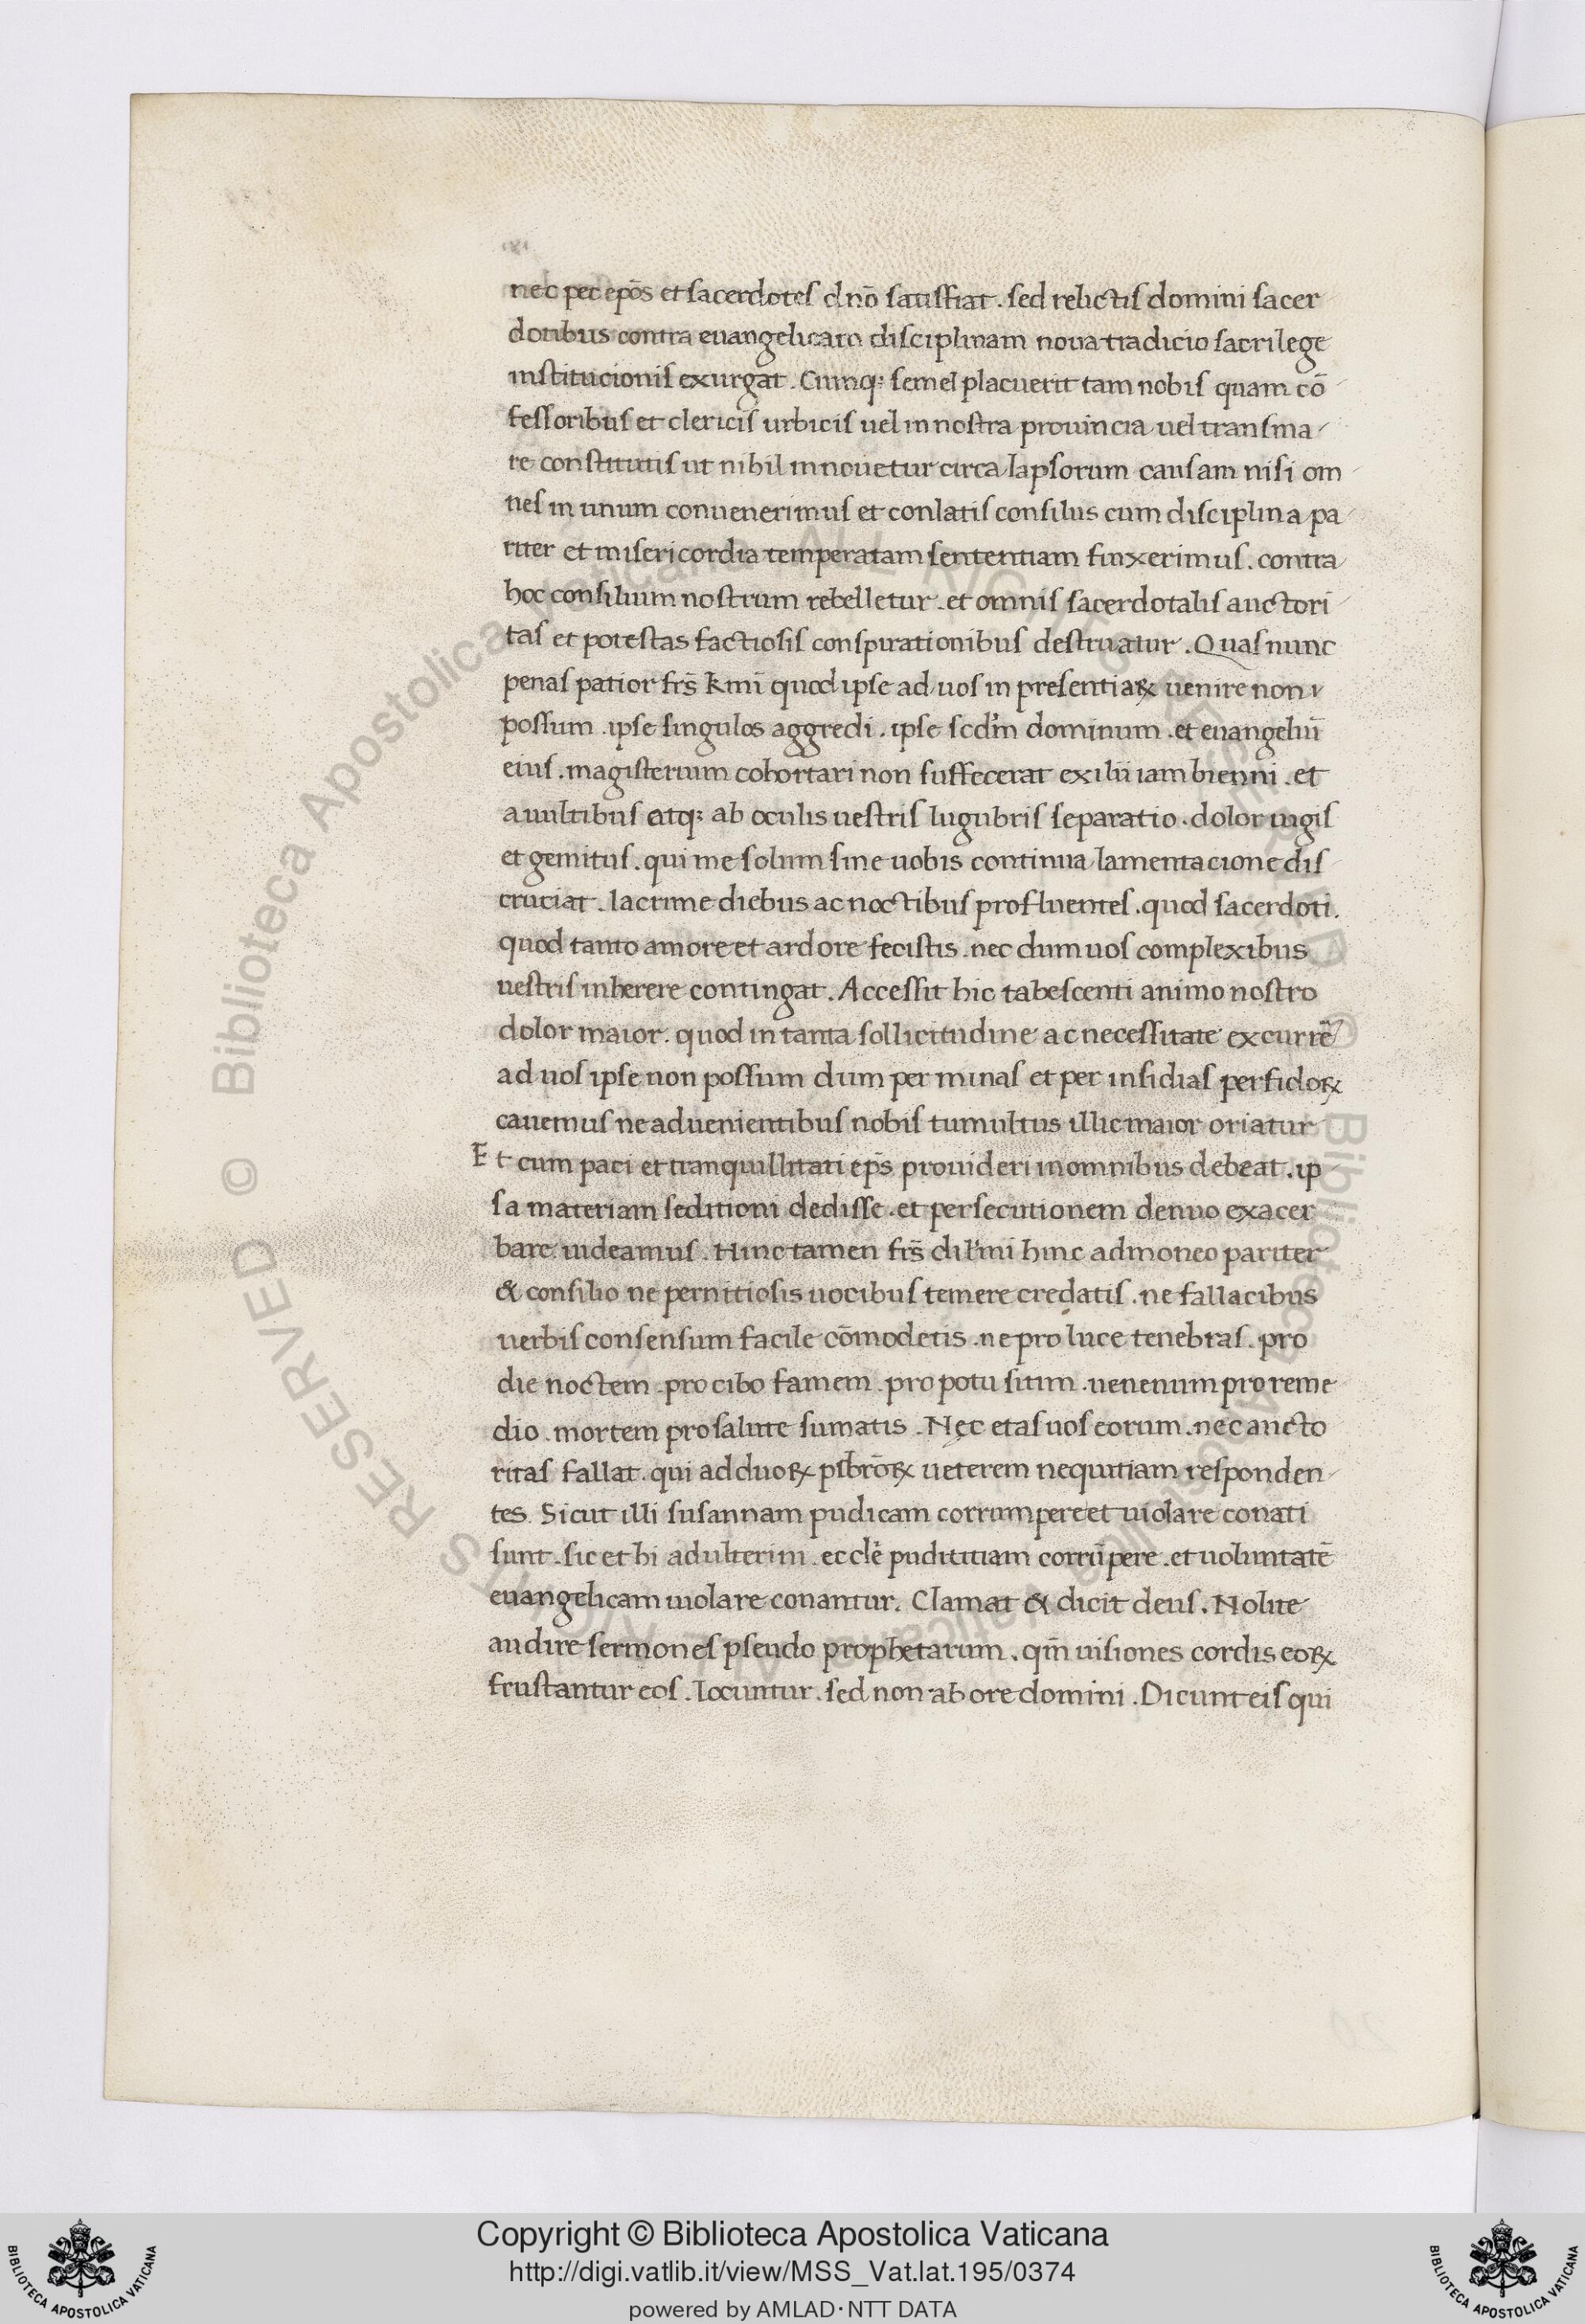 nec per ep̄os et sacerdotes dn̄o satisfiat . sed relictis domini sacer
dotibus contra euangelicam disciplinam noua tradicio sacrilege
institucionis exurgat . Cumq; semel placuerit tam nobis quam cō
fessoribus et clericis urbicis uel in nostra prouincia uel transma
re constitutis ut nihil innouetur circa lapsorum causam nisi om
nes in unum conuenerimus et conlatis consiliis cum disciplina pa
riter et misericordia temperatam sententiam finxerimus . contra
hoc consilium nostrum rebelletur . et omnis sacerdotalis auctori
tas et potestas factiosis conspirationibus destruatur . Quas nunc
penas patior frs̄ kmī quod ipse ad uos in presentiaꝝ uenire non
possum . ipse singulos aggredi . ipse scdm̄ dominum . et euangeliū
eius . magisterium cohortari non suffecerat exilii iam bienni . et
a uultibus atq; ab oculis uestris lugubris separatio . dolor iugis
et gemitus . qui me solum sine uobis continua lamentacione dis
cruciat . lacrime diebus ac noctibus profluentes . quod sacerdoti .
quod tanto amore et ardore fecistis . nec dum uos complexibus
uestris inherere contingat . Accessit hic tabescenti animo nostro
dolor maior . quod in tanta sollicitudine ac necessitate excurrē
ad uos ipse non possum dum per minas et per insidias perfidoꝝ
cauemus ne aduenientibus nobis tumultus illic maior oriatur
Et cum paci et tranquillitati ep̄s prouideri in omnibus debeat . ip
sa materiam seditioni dedisse . et persecutionem denuo exacer
bare uideamus . Hinc tamen frs̄ dil'mi hinc admoneo pariter
& consilio ne pernitiosis uocibus temere credatis . ne fallacibus
uerbis consensum facile cōmodetis . ne pro luce tenebras . pro
die noctem . pro cibo famem . pro potu sitim . uenenum pro reme
dio . mortem pro salute sumatis . Nec etas uos eorum . nec aucto
ritas fallat . qui ad duoꝝ psbrōꝝ ueterem nequitiam responden
tes . Sicut illi susannam pudicam corrumpere et uiolare conati
sunt . sic et hi adulterini . eccl'e pudititiam corrūpere . et uoluntatē
euangelicam uiolare conantur . Clamat & dicit deus . Nolite
audire sermones pseudo prophetarum . qm̄ uisiones cordis eoꝝ
frustantur eos . locuntur . sed non ab ore domini . Dicunt eis qui
© Biblioteca Apostolica Vaticana ALL RIGHTS RESERVED
© Biblioteca Apostolica Vaticana ALL RIGHTS RESERVED
BIBLIOTECA APOSTOLICA VATICANA
Copyright © Biblioteca Apostolica Vaticana
http://digi.vatlib.it/view/MSS_Vat.lat.195/0374
powered by AMLAD·NTT DATA
BIBLIOTECA APOSTOLICA VATICANA